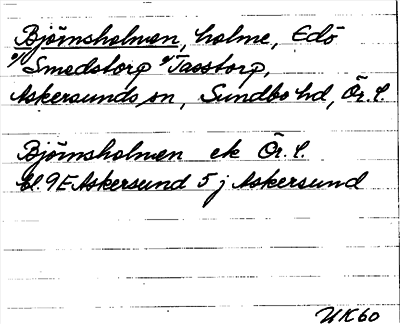 Björnsholmen, holme, Edö
o/Smedstorp o/Tasstorp,
Askersunds sn, Sundbo hd, Ör. l.
Björnsholmen ek Ör. l.
bl. 9E Askersund 5 j Askersund
UK60